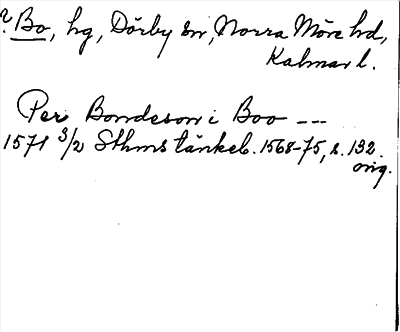 ? Bo, hg, Dörby sn, Norra Möre hd,
Kalmar l.
Per Bondeson i Boo ---
1571 3/2 Sthms tänkeb. 1568-75, s. 132.
orig.